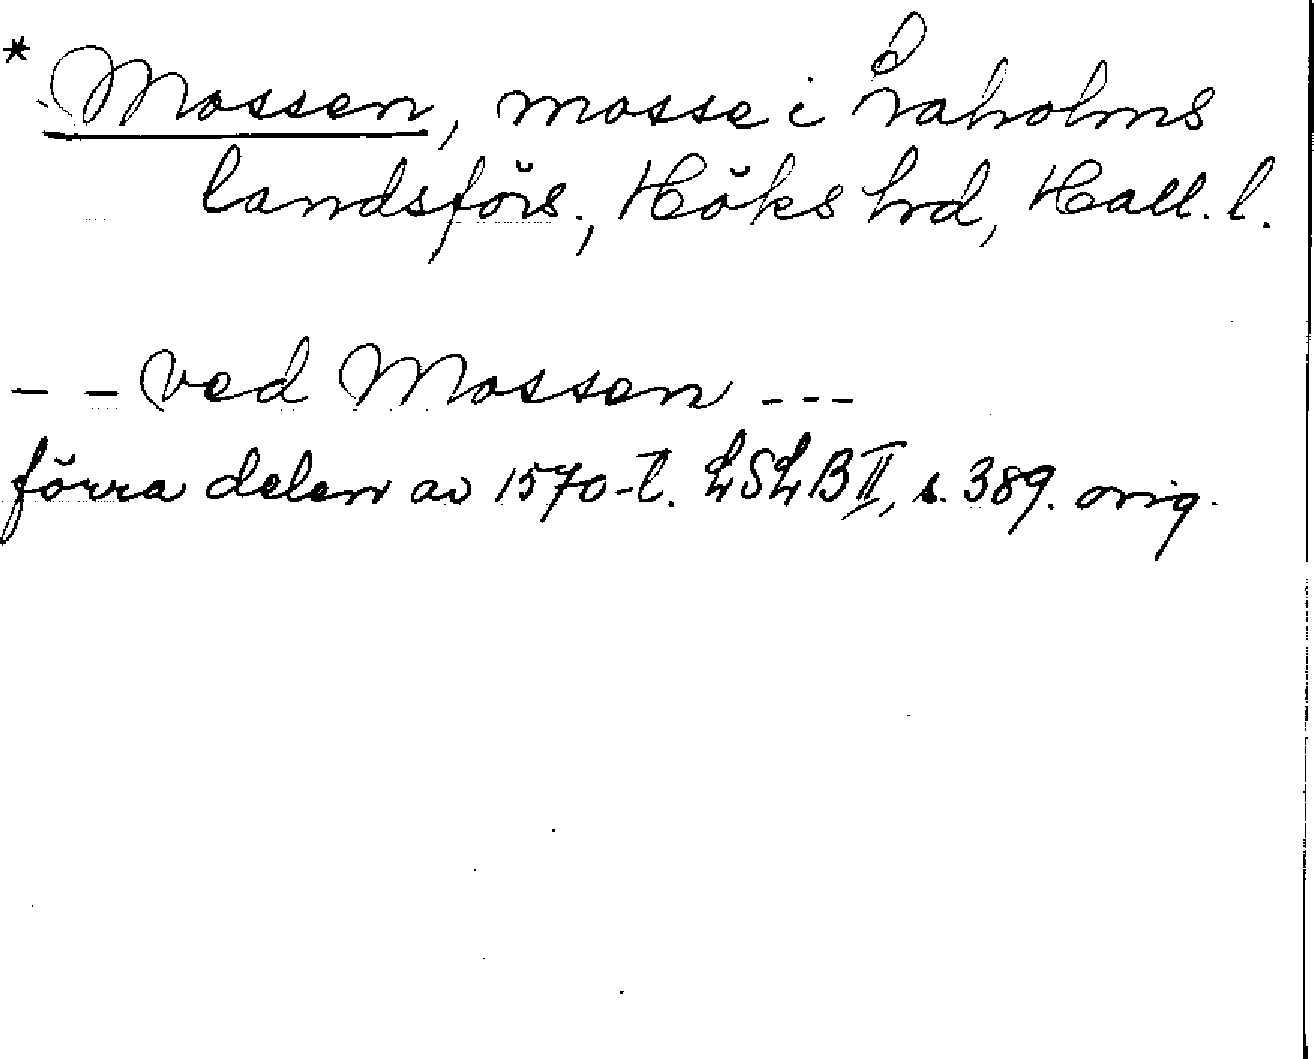 * Mossen, mosse i Laholms
landsförs., Höks hrd, Hall. l.
– – ved Mossen – – –
förra delen av 1570-t. LSLB II, s. 389. orig.